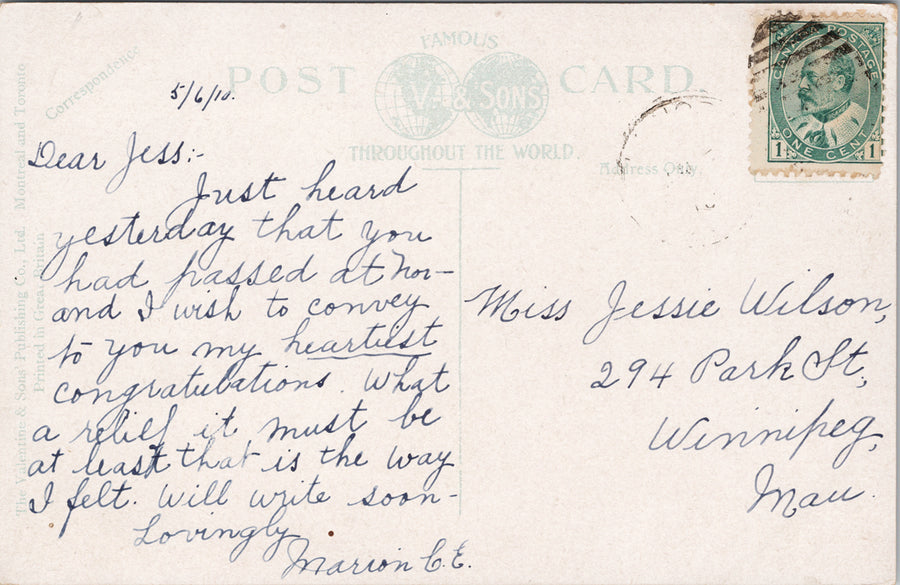 FAMOUS
POST CARD.
V. & SONS
THROUGHOUT THE WORLD.
Correspondence
Address Only
The Valentine & Sons' Publishing Co., Ltd. Montreal and Toronto
Printed in Great Britain
CANADA POSTAGE
ONE CENT
1 1
5/6/10.
Dear Jess:-
Just heard
yesterday that you
had passed at Nor-
and I wish to convey
to you my heartiest
congratulations. What
a relief it must be
at least that is the way
I felt. Will write soon-
Lovingly
Marion C.E.
Miss Jessie Wilson,
294 Park St,
Winnipeg,
Man.